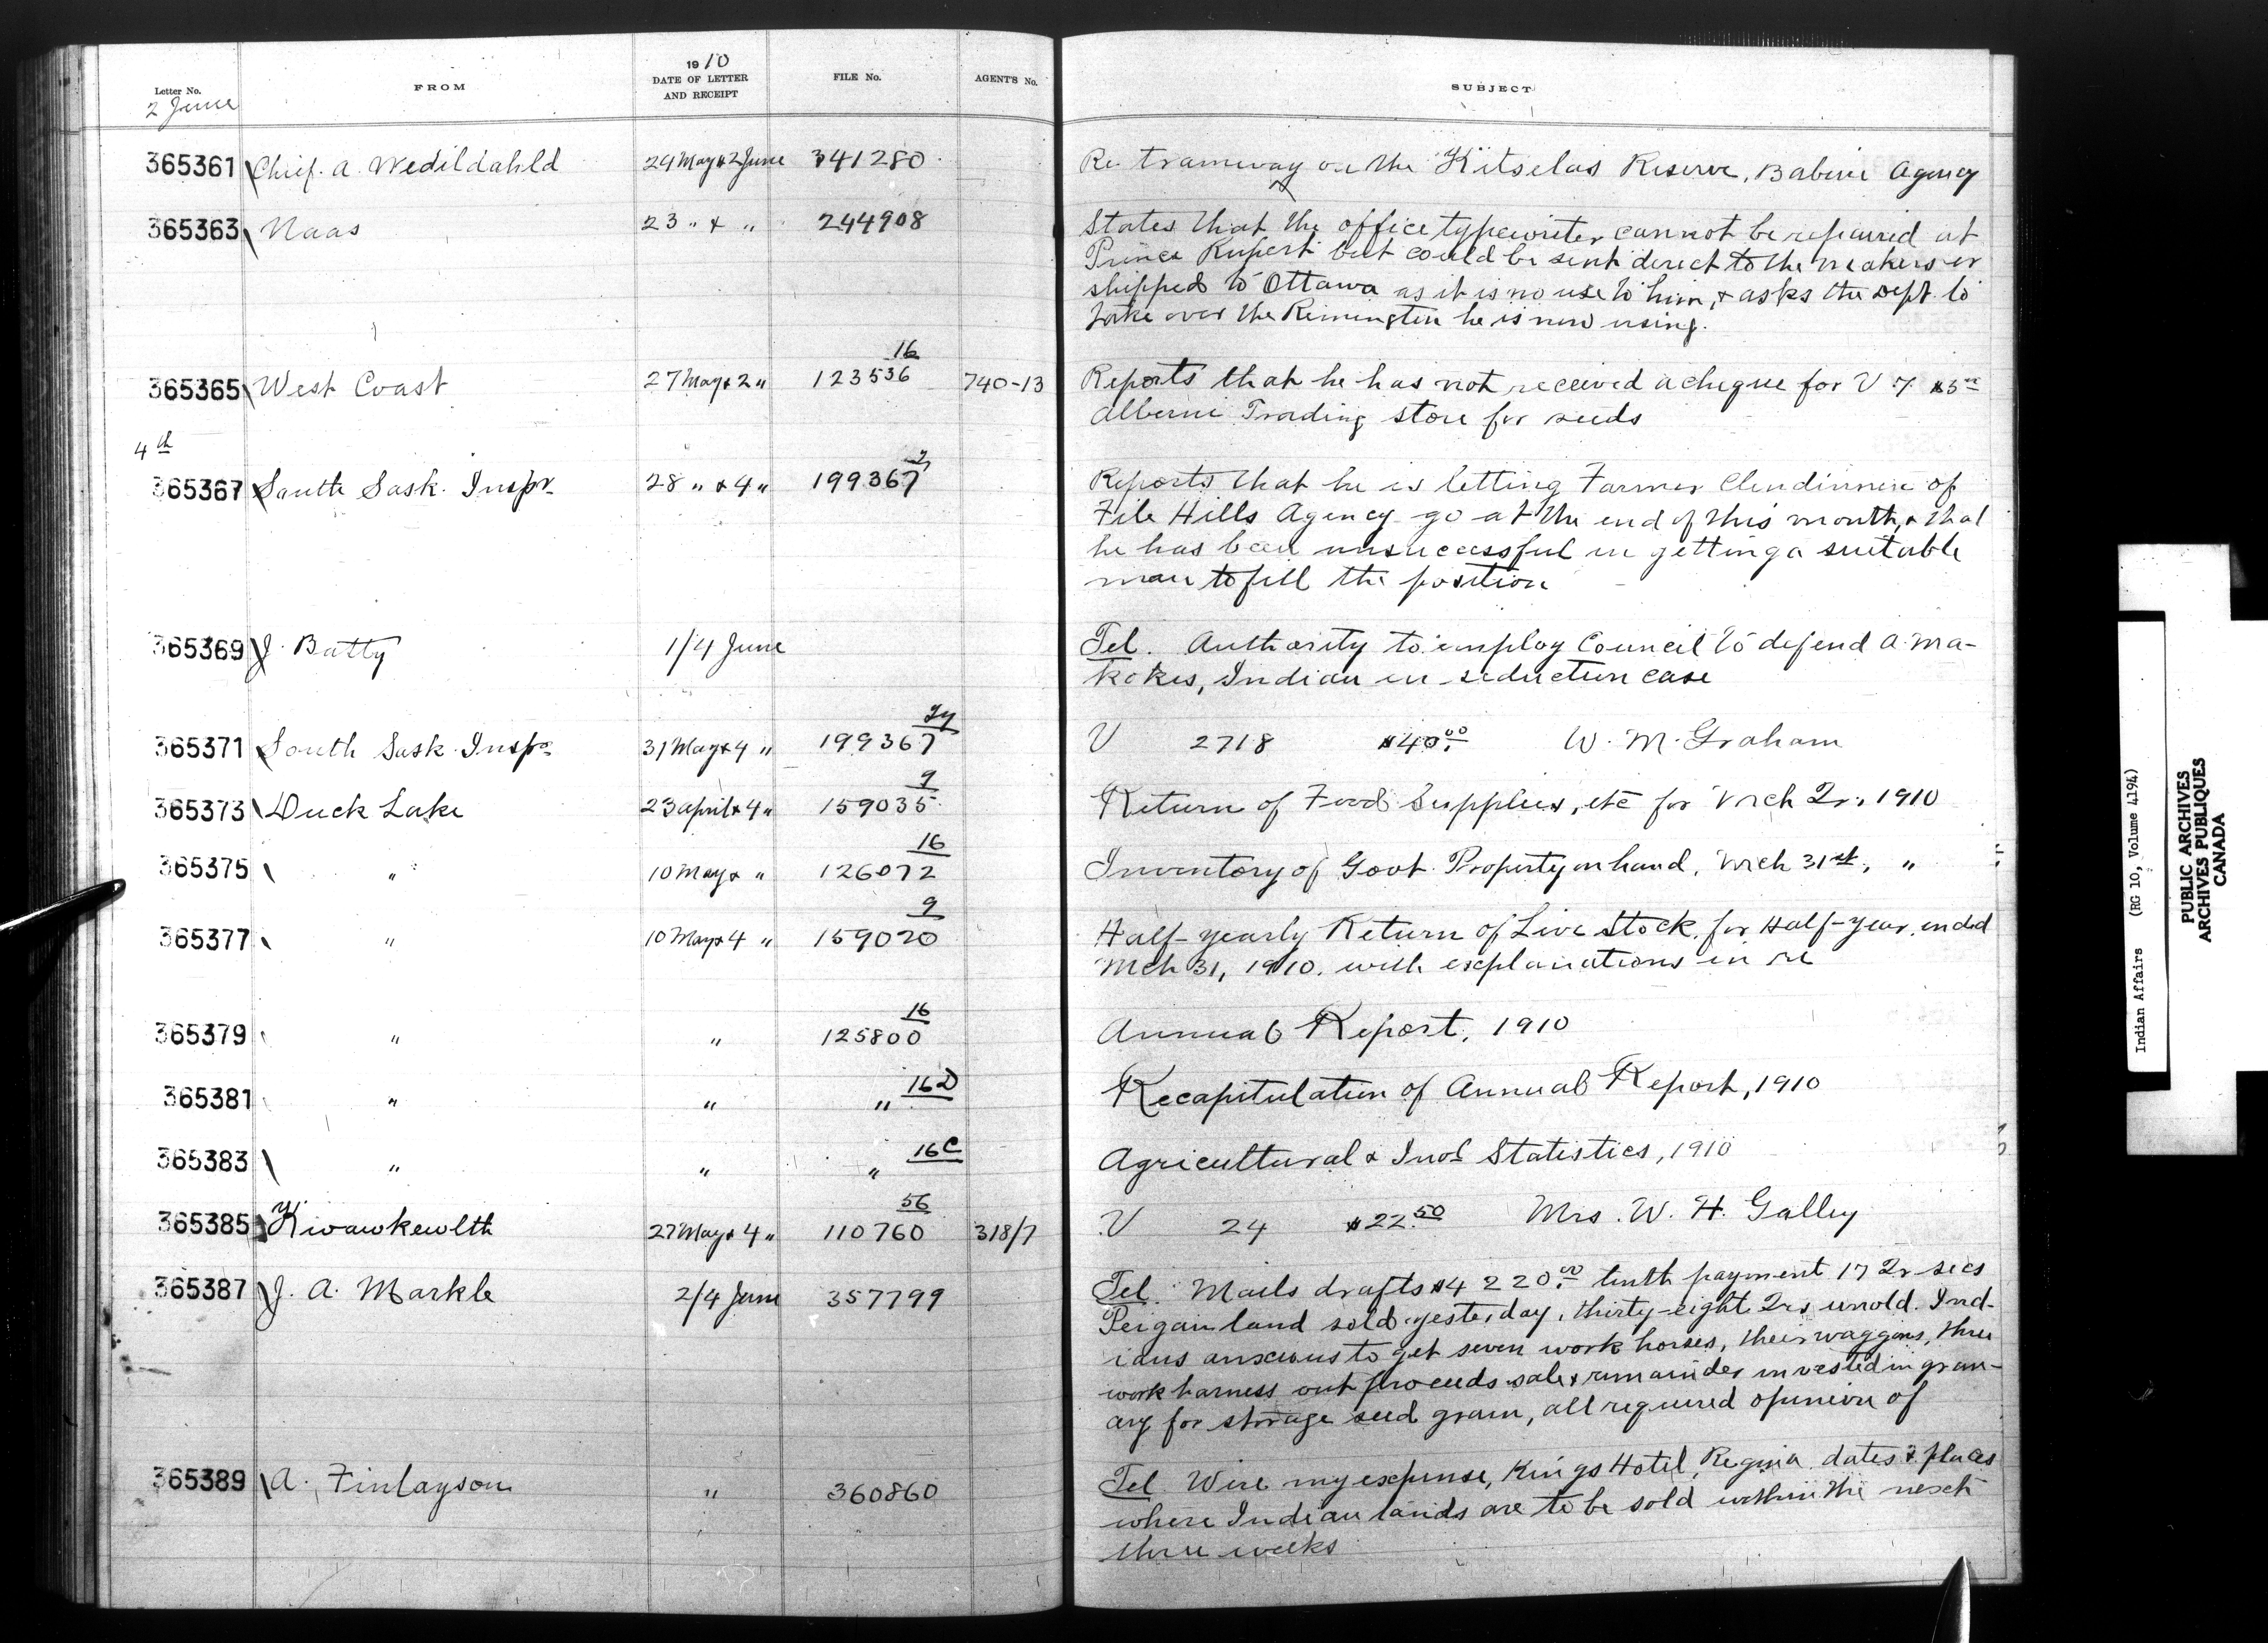 Letter No.
FROM
1910
DATE OF LETTER
AND RECEIPT
FILE No.
AGENT'S No.
SUBJECT
2 June
365361 Chief. A. Wedildahld 24 May & 2 June 341280 Re tramway on the Kitselas Reserve, Babine Agency
365363 Naas 23 " & " 244908 States that the office typewriter cannot be repaired at
Prince Rupert but could be sent direct to the makers or
shipped to Ottawa as it is no use to him, & asks the Dept. to
take over the Remington he is now using.
16
365365 West Coast 27 May & 2 " 123536 740-13 Reports that he has not received a cheque for V 7 $5 00
Alberni Trading store for seeds
4th
2
365367 South Sask. Inspr. 28 " & 4 " 199367 Reports that he is letting Farmer Clendinnen of
File Hills Agency go at the end of this month, & that
he has been unsuccessful in getting a suitable
man to fill the position
365369 J. Batty 1/4 June Tel. Authority to employ Council to defend A. Ma-
kokis, Indian in seduction case
365371 South Sask. Inspr. 31 May & 4 " 199367 V 2718 $40.00 W. M. Graham
9
365373 Duck Lake 23 April & 4 " 159035 Return of Food Supplies, etc for Mch Qr., 1910
16
365375 " 10 May & " 126072 Inventory of Govt. Property on hand, Mch 31st, "
9
365377 " 10 May & 4 " 159020 Half-yearly Return of Live Stock, for Half-year, ended
Mch 31, 1910. with explanations in re
16
365379 " " 125800 Annual Report, 1910
16D
365381 " " " Recapitulation of Annual Report, 1910
16C
365383 " " " Agricultural & Indl Statistics, 1910
56
365385 Kwawkewlth 27 May & 4 " 110760 318/7 V 24 $22.50 Mrs. W. H. Galley
365387 J. A. Markle 2/4 June 357799 Tel. Mails drafts $4220.00 tenth payment 17 Qr secs
Peigan land sold yesterday, thirty-eight Qrs unsold. Ind-
ians anxious to get seven work horses, their waggons, three
work harness out proceeds sale & remainder invested in gran-
ary for storage seed grain, all required opinion of
365389 A. Finlayson " 360860 Tel. Wire my expense, Kings Hotel, Regina dates & places
where Indian lands are to be sold within the next
three weeks
Indian Affairs (RG 10, Volume 4194)
PUBLIC ARCHIVES
ARCHIVES PUBLIQUES
CANADA